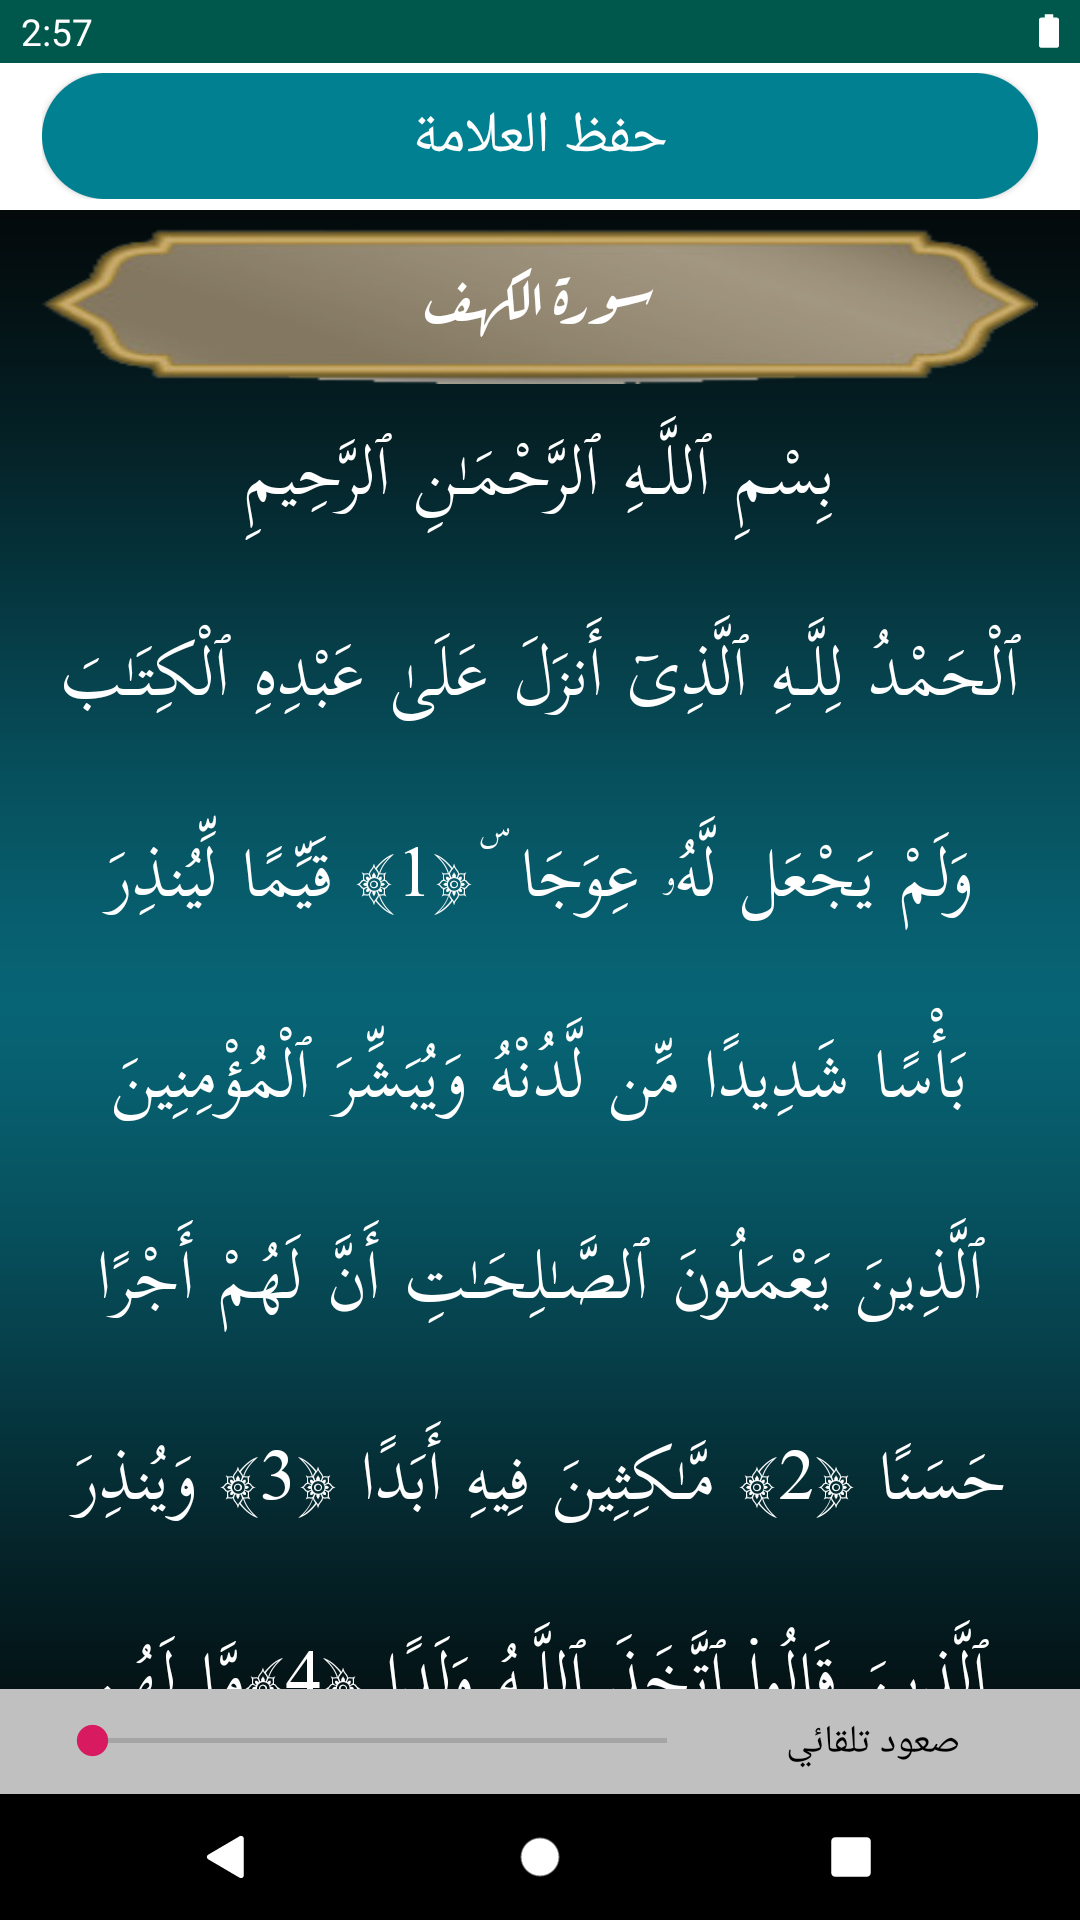 2:57
حفظ العلامة
سورة الكهف
بِسْمِ ٱللَّـهِ ٱلرَّحْمَـٰنِ ٱلرَّحِيمِ
ٱلْحَمْدُ لِلَّـهِ ٱلَّذِىٓ أَنزَلَ عَلَىٰ عَبْدِهِ ٱلْكِتَـٰبَ
وَلَمْ يَجْعَل لَّهُۥ عِوَجَا ۜ ﴿1﴾ قَيِّمًا لِّيُنذِرَ
بَأْسًا شَدِيدًا مِّن لَّدُنْهُ وَيُبَشِّرَ ٱلْمُؤْمِنِينَ
ٱلَّذِينَ يَعْمَلُونَ ٱلصَّـٰلِحَـٰتِ أَنَّ لَهُمْ أَجْرًا
حَسَنًا ﴿2﴾ مَّـٰكِثِينَ فِيهِ أَبَدًا ﴿3﴾ وَيُنذِرَ
ٱلَّذِينَ قَالُوا۟ ٱتَّخَذَ ٱللَّـهُ وَلَدًا ﴿4﴾مَّا لَهُم
صعود تلقائي